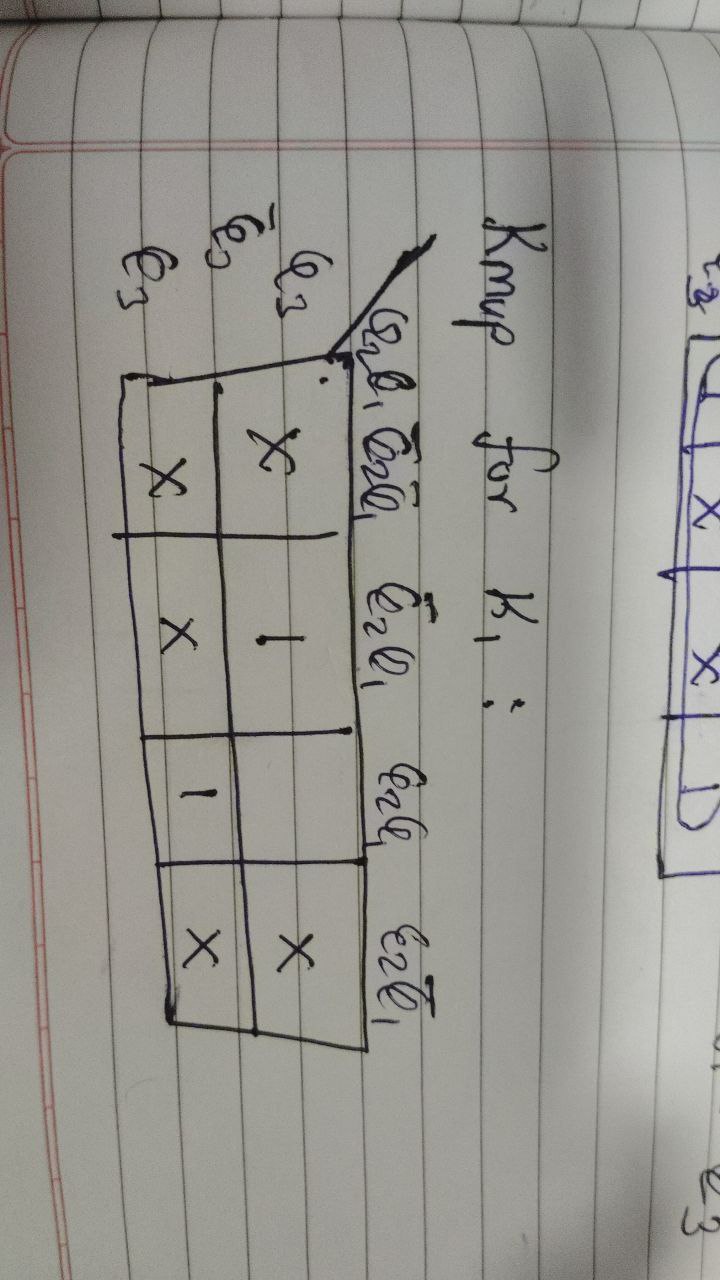 Kmap for K₁ :
Q₂Q₁ Q̅₂Q̅₁ Q̅₂Q₁ Q₂Q₁ Q₂Q̅₁
Q₃
Q̅₃ X 1 X
Q₃ X X 1 X
X X
1 1